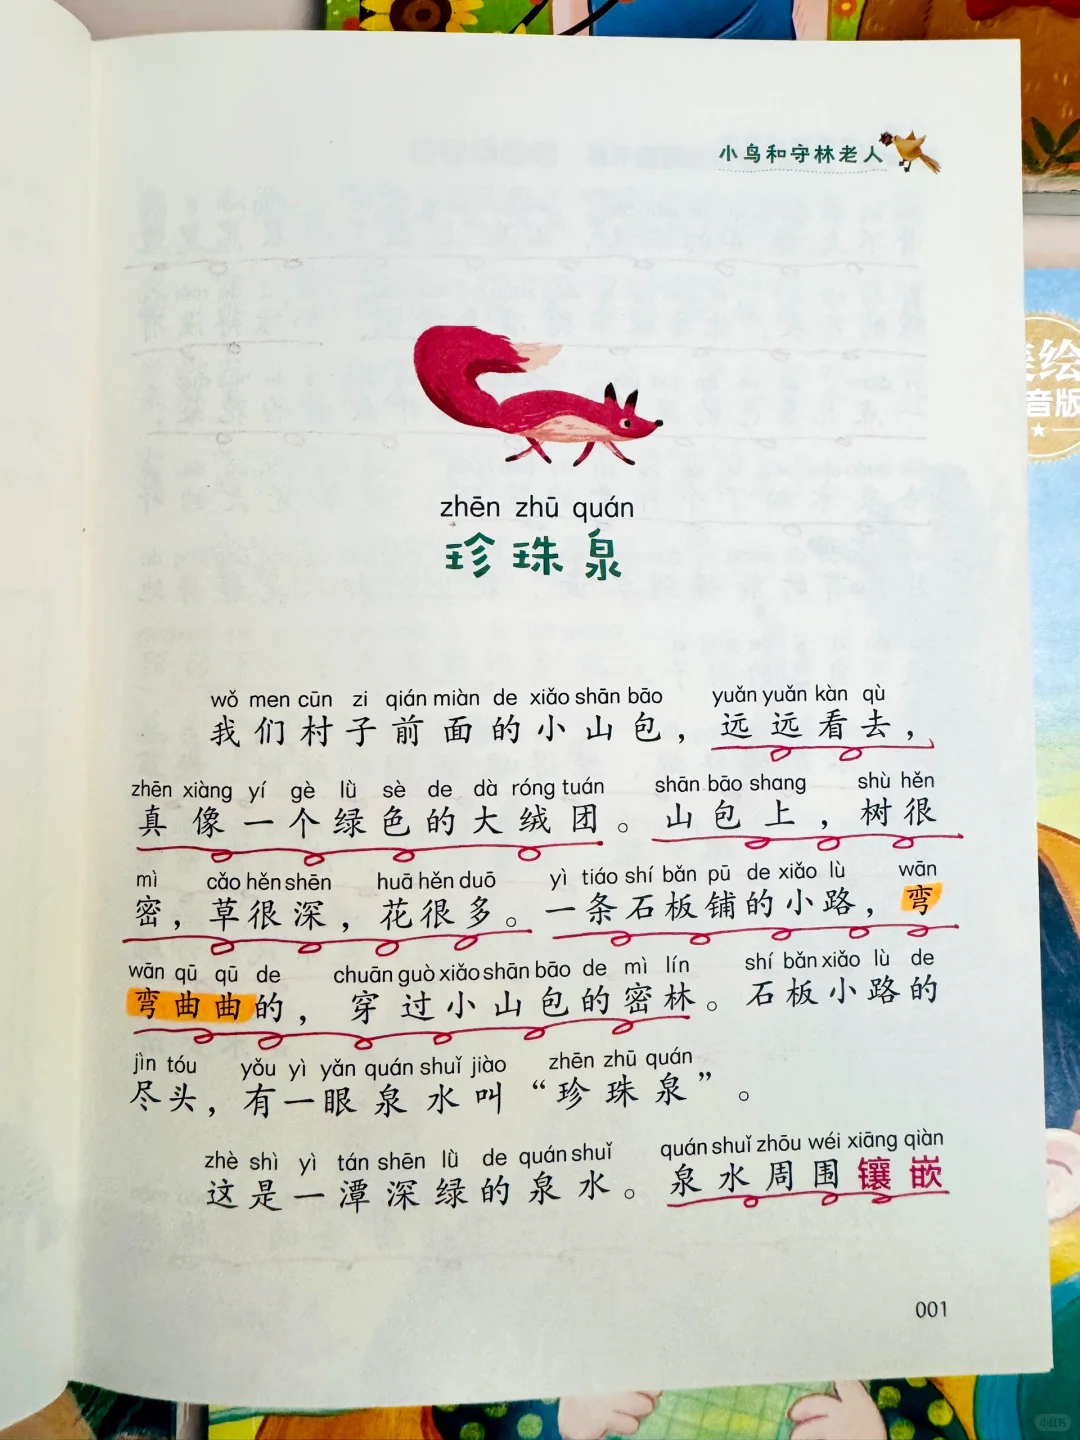 小鸟和守林老人
zhēn zhū quán
珍珠泉
wǒ men cūn zi qián miàn de xiǎo shān bāo yuǎn yuǎn kàn qù
我们村子前面的小山包，远远看去，
zhēn xiàng yí gè lǜ sè de dà róng tuán shān bāo shang shù hěn
真像一个绿色的大绒团。山包上，树很
mì cǎo hěn shēn huā hěn duō yì tiáo shí bǎn pū de xiǎo lù wān
密，草很深，花很多。一条石板铺的小路，弯
wān qū qū de chuān guò xiǎo shān bāo de mì lín shí bǎn xiǎo lù de
弯曲曲的，穿过小山包的密林。石板小路的
jìn tóu yǒu yì yǎn quán shuǐ jiào zhēn zhū quán
尽头，有一眼泉水叫“珍珠泉”。
zhè shì yì tán shēn lǜ de quán shuǐ quán shuǐ zhōu wéi xiāng qiàn
这是一潭深绿的泉水。泉水周围镶嵌
001
绘
音版
小红书